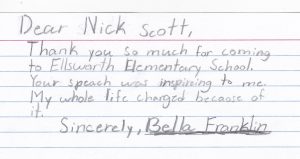 Dear Nick Scott,
Thank you so much for coming
to Ellsworth Elementary School.
Your speach was inspiring to me.
My whole life changed because of
it.
Sincerely, Bella Franklin